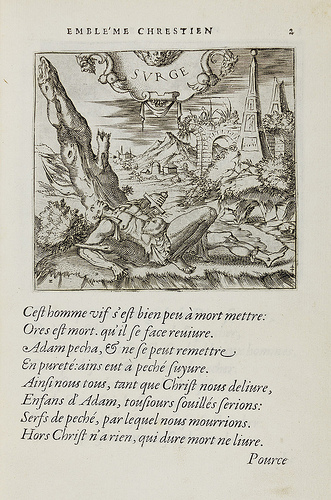 EMBLEME CHRESTIEN 2
SVRGE
Cest homme vif s'est bien peu à mort mettre:
Ores est mort. qu'il se face reuiure.
Adam pecha, & ne se peut remettre
En pureté: ains eut à peché suyure.
Ainsi nous tous, tant que Christ nous deliure,
Enfans d'Adam, tousiours souillés serions:
Serfs de peché, par lequel nous mourrions.
Hors Christ n'a rien, qui dure mort ne liure.
Pource